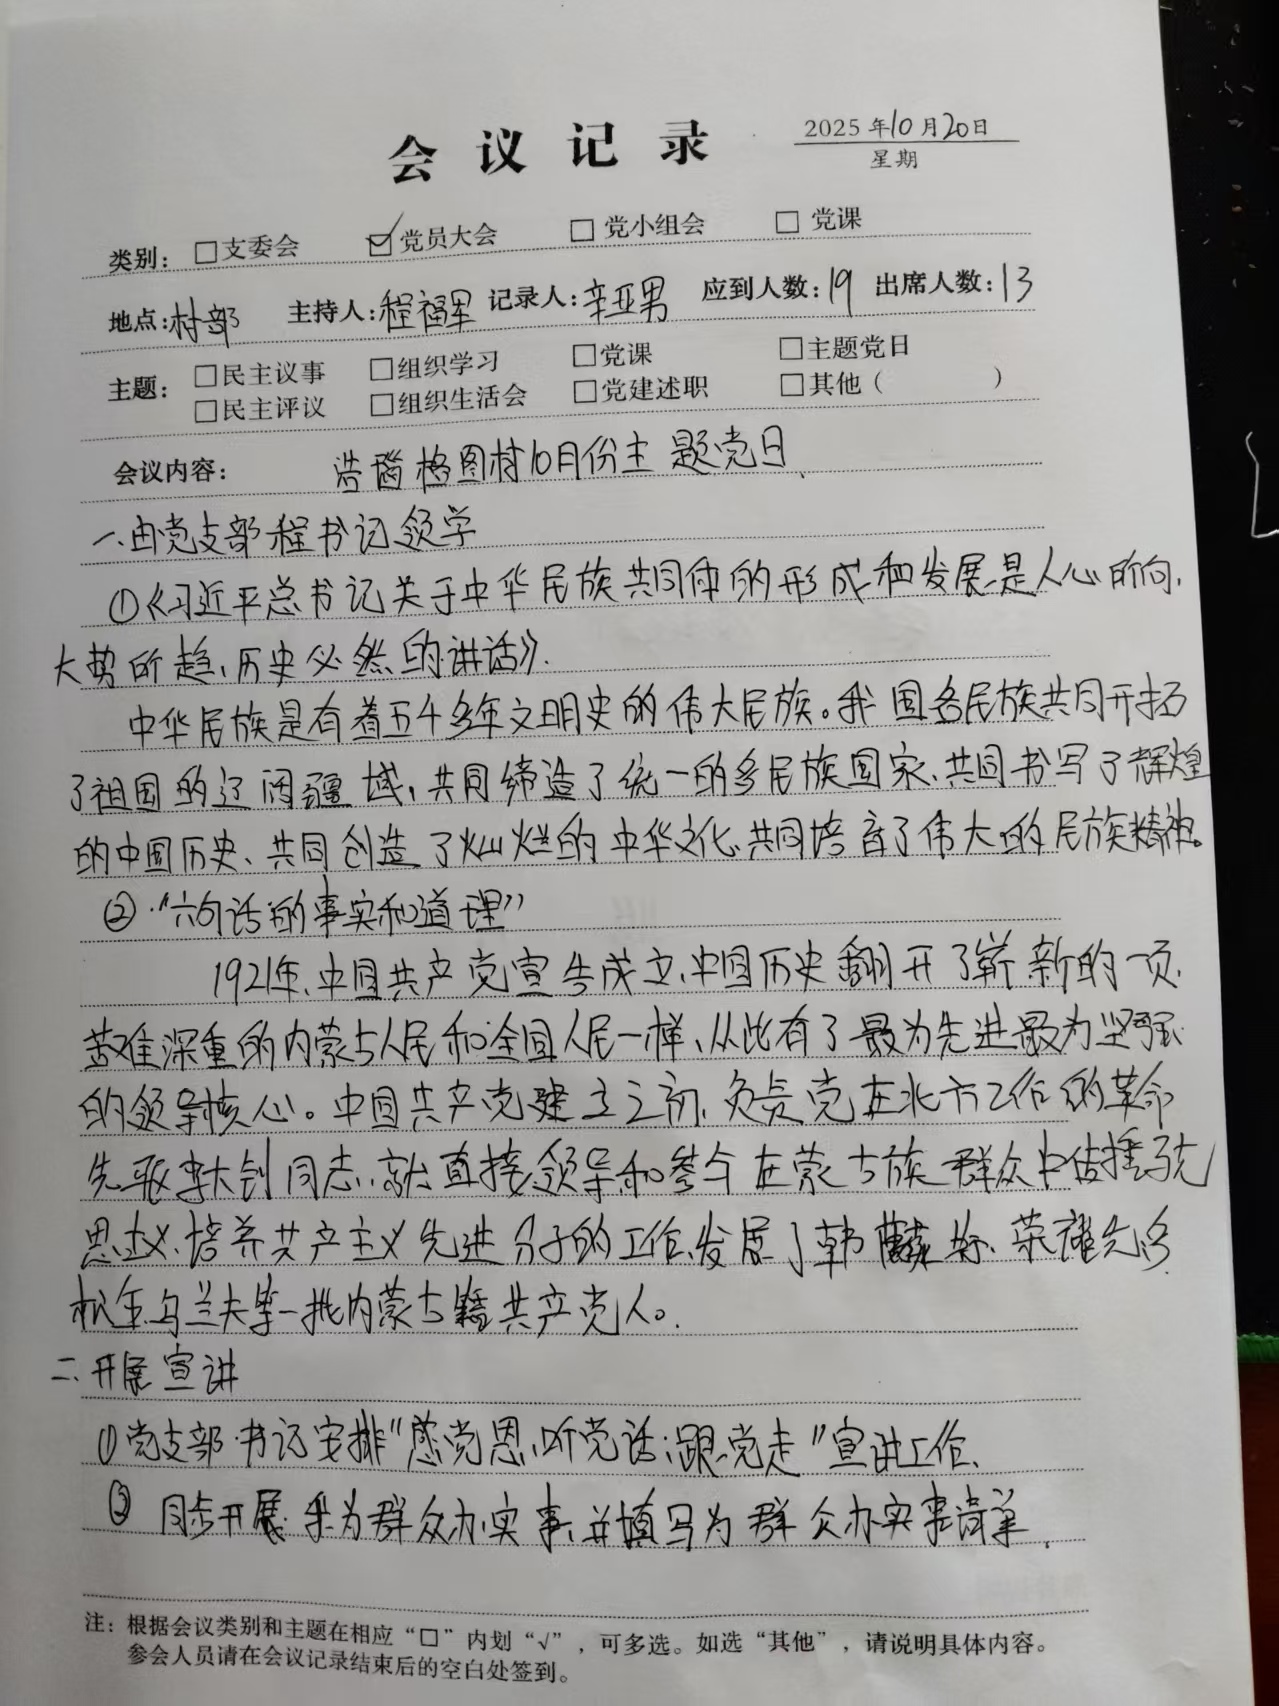 会议记录
2025年10月20日
星期
类别：□支委会 ☑党员大会 □党小组会 □党课
地点：村部 主持人：程福军 记录人：辛亚男 应到人数：19 出席人数：13
主题：□民主议事 □组织学习 □党课 □主题党日
□民主评议 □组织生活会 □党建述职 □其他（ ）
会议内容： 浩 格图村10月份主题党日
一、由党支部程书记领学
①《习近平总书记关于中华民族共同体的形成和发展是人心所向，
大势所趋，历史必然的讲话》.
中华民族是有着五千多年文明史的伟大民族。我国各民族共同开拓
了祖国的辽阔疆域，共同缔造了统一的多民族国家、共同书写了辉煌
的中国历史、共同创造了灿烂的中华文化、共同培育了伟大的民族精神。
②“六句话的事实和道理”
1921年、中国共产党宣告成立、中国历史翻开了崭新的一页，
苦难深重的内蒙古人民和全国人民一样、从此有了最为先进最为坚强
的领导核心。中国共产党建立之初、负责党在北方工作的革命
先驱李大钊同志、就直接领导和参与在蒙古族群众中传播马克
思主义、培养共产主义先进分子的工作、发展了韩麟符、荣耀先、多
松年、乌兰夫等一批内蒙古籍共产党人。
二、开展宣讲
①党支部书记安排“感党恩，听党话，跟党走”宣讲工作、
② 同步开展 我为群众办实事、并填写为群众办实事清单.
注：根据会议类别和主题在相应“□”内划“√”，可多选。如选“其他”，请说明具体内容。
参会人员请在会议记录结束后的空白处签到。